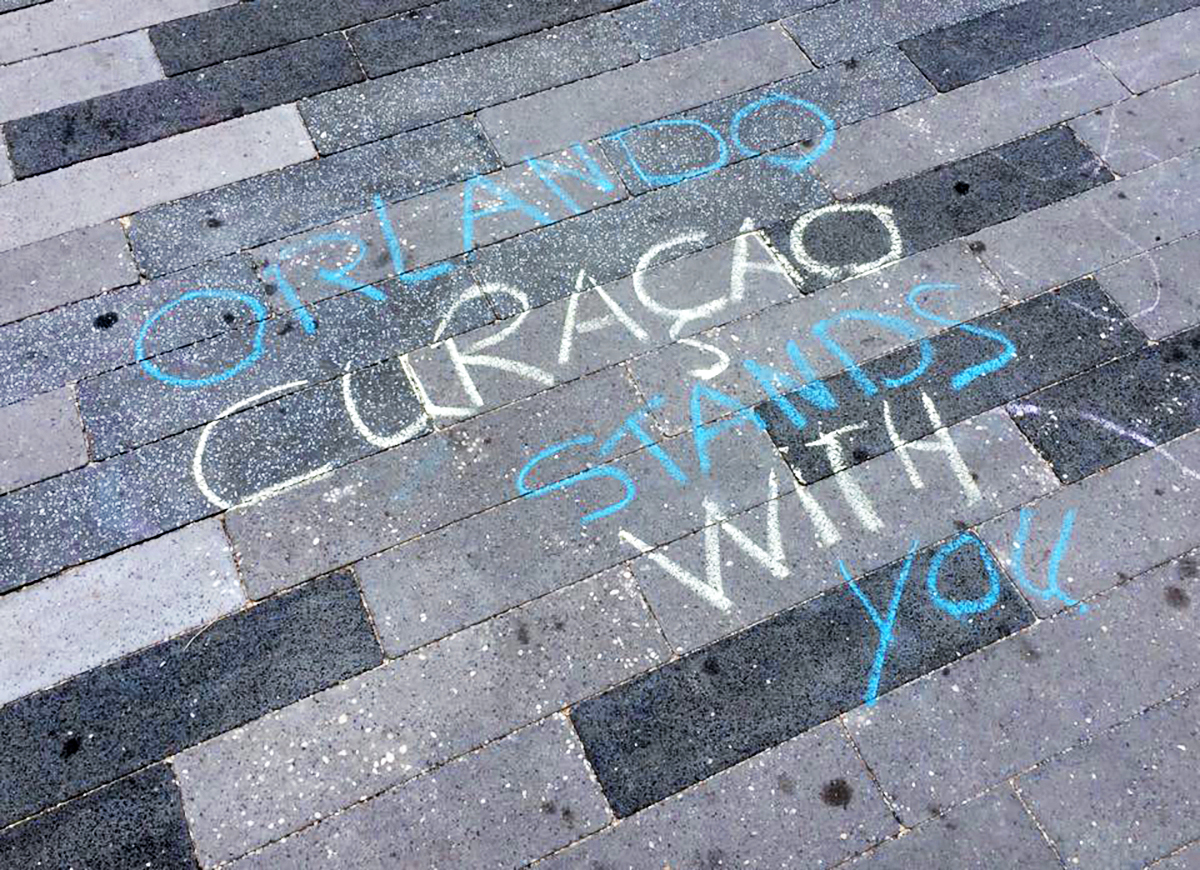 ORLANDO
CURAÇAO
STANDS
WITH
YOU